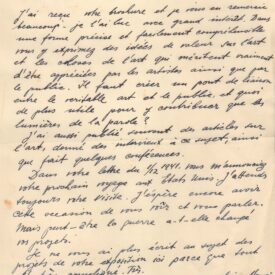 J'ai reçu votre brochure et je vous en remercie
beaucoup - je l'ai lue avec grand intérêt. Dans
une forme précise et facilement compréhensible
vous y exprimez des idées de valeur sur l'art
et les choses de l'art qui méritent vraiment
d'être appréciées par les artistes ainsi que par
le public. Il faut créer un pont de liaison
entre le véritable art et le public, et quoi
de plus utile pour y contribuer que les
lumières de la parole?
J'ai aussi publié souvent des articles sur
l'art, donné des interviews à ce sujet, ainsi
que fait quelques conférences.
Dans votre lettre du 1941, vous m'annonciez
votre prochain voyage aux États Unis. J'attends
toujours votre visite. J'espère encore avoir
cette occasion de vous voir et vous parler.
Mais peut-être la guerre a-t-elle changé
vos projets.
Je ne vous ai plus écrit au sujet des
projets de votre exposition ici parce que tout